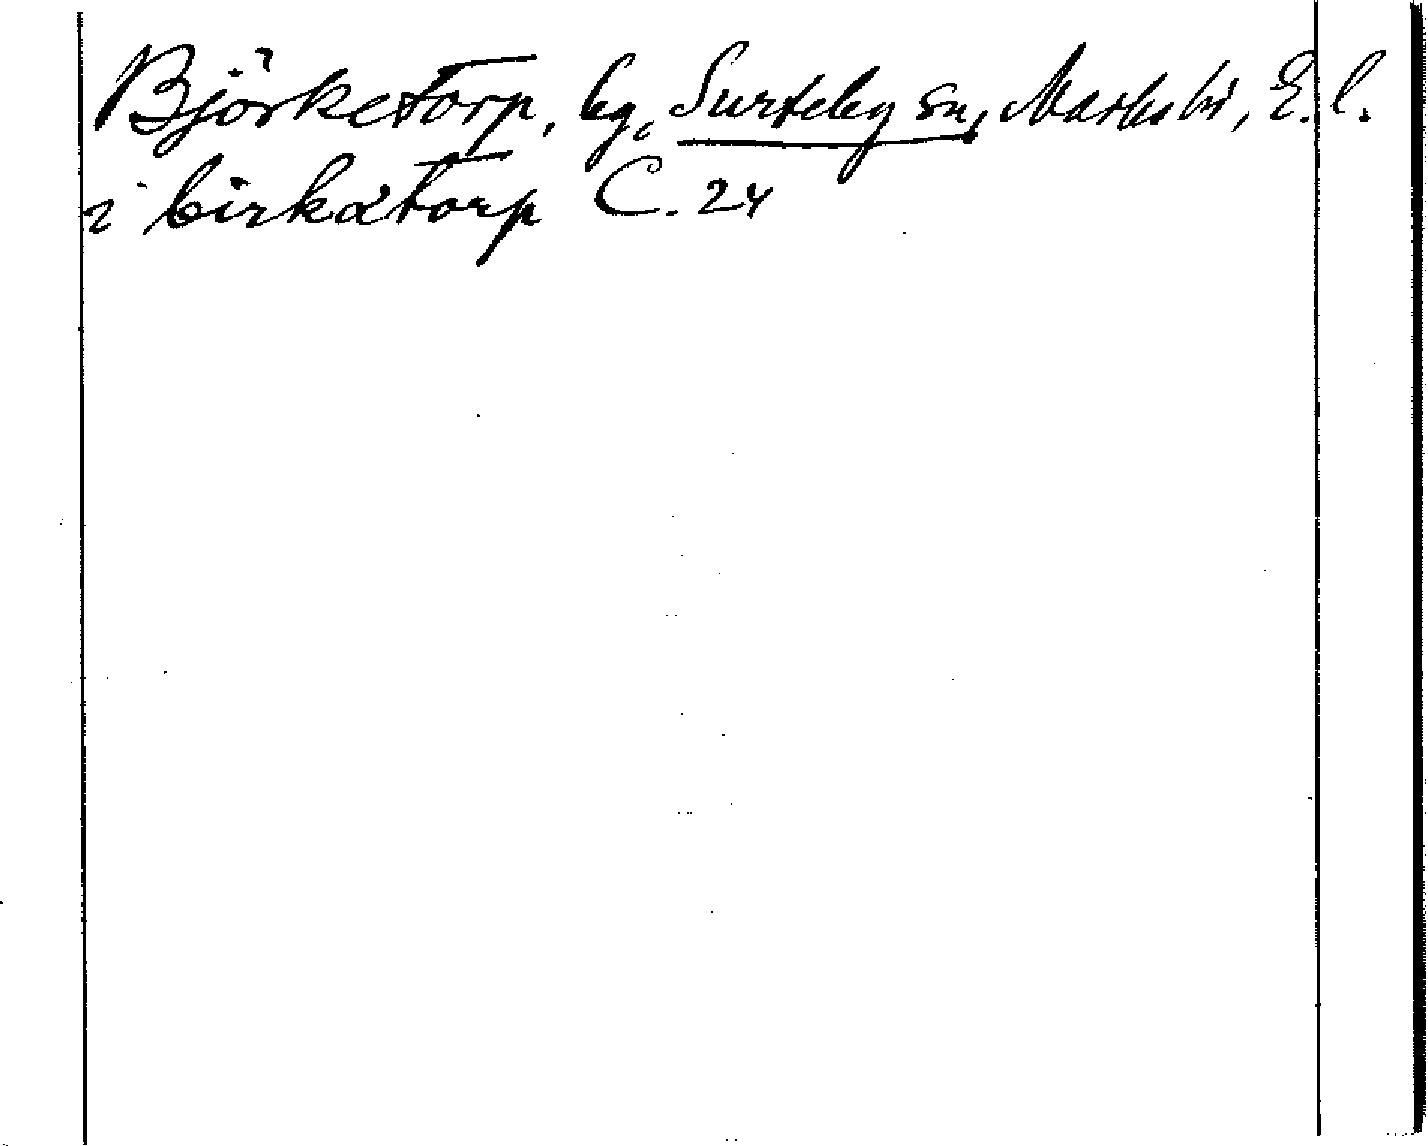 Björketorp, by, Surteby sn, Marks hd, E. l.
i birkatorp C. 24